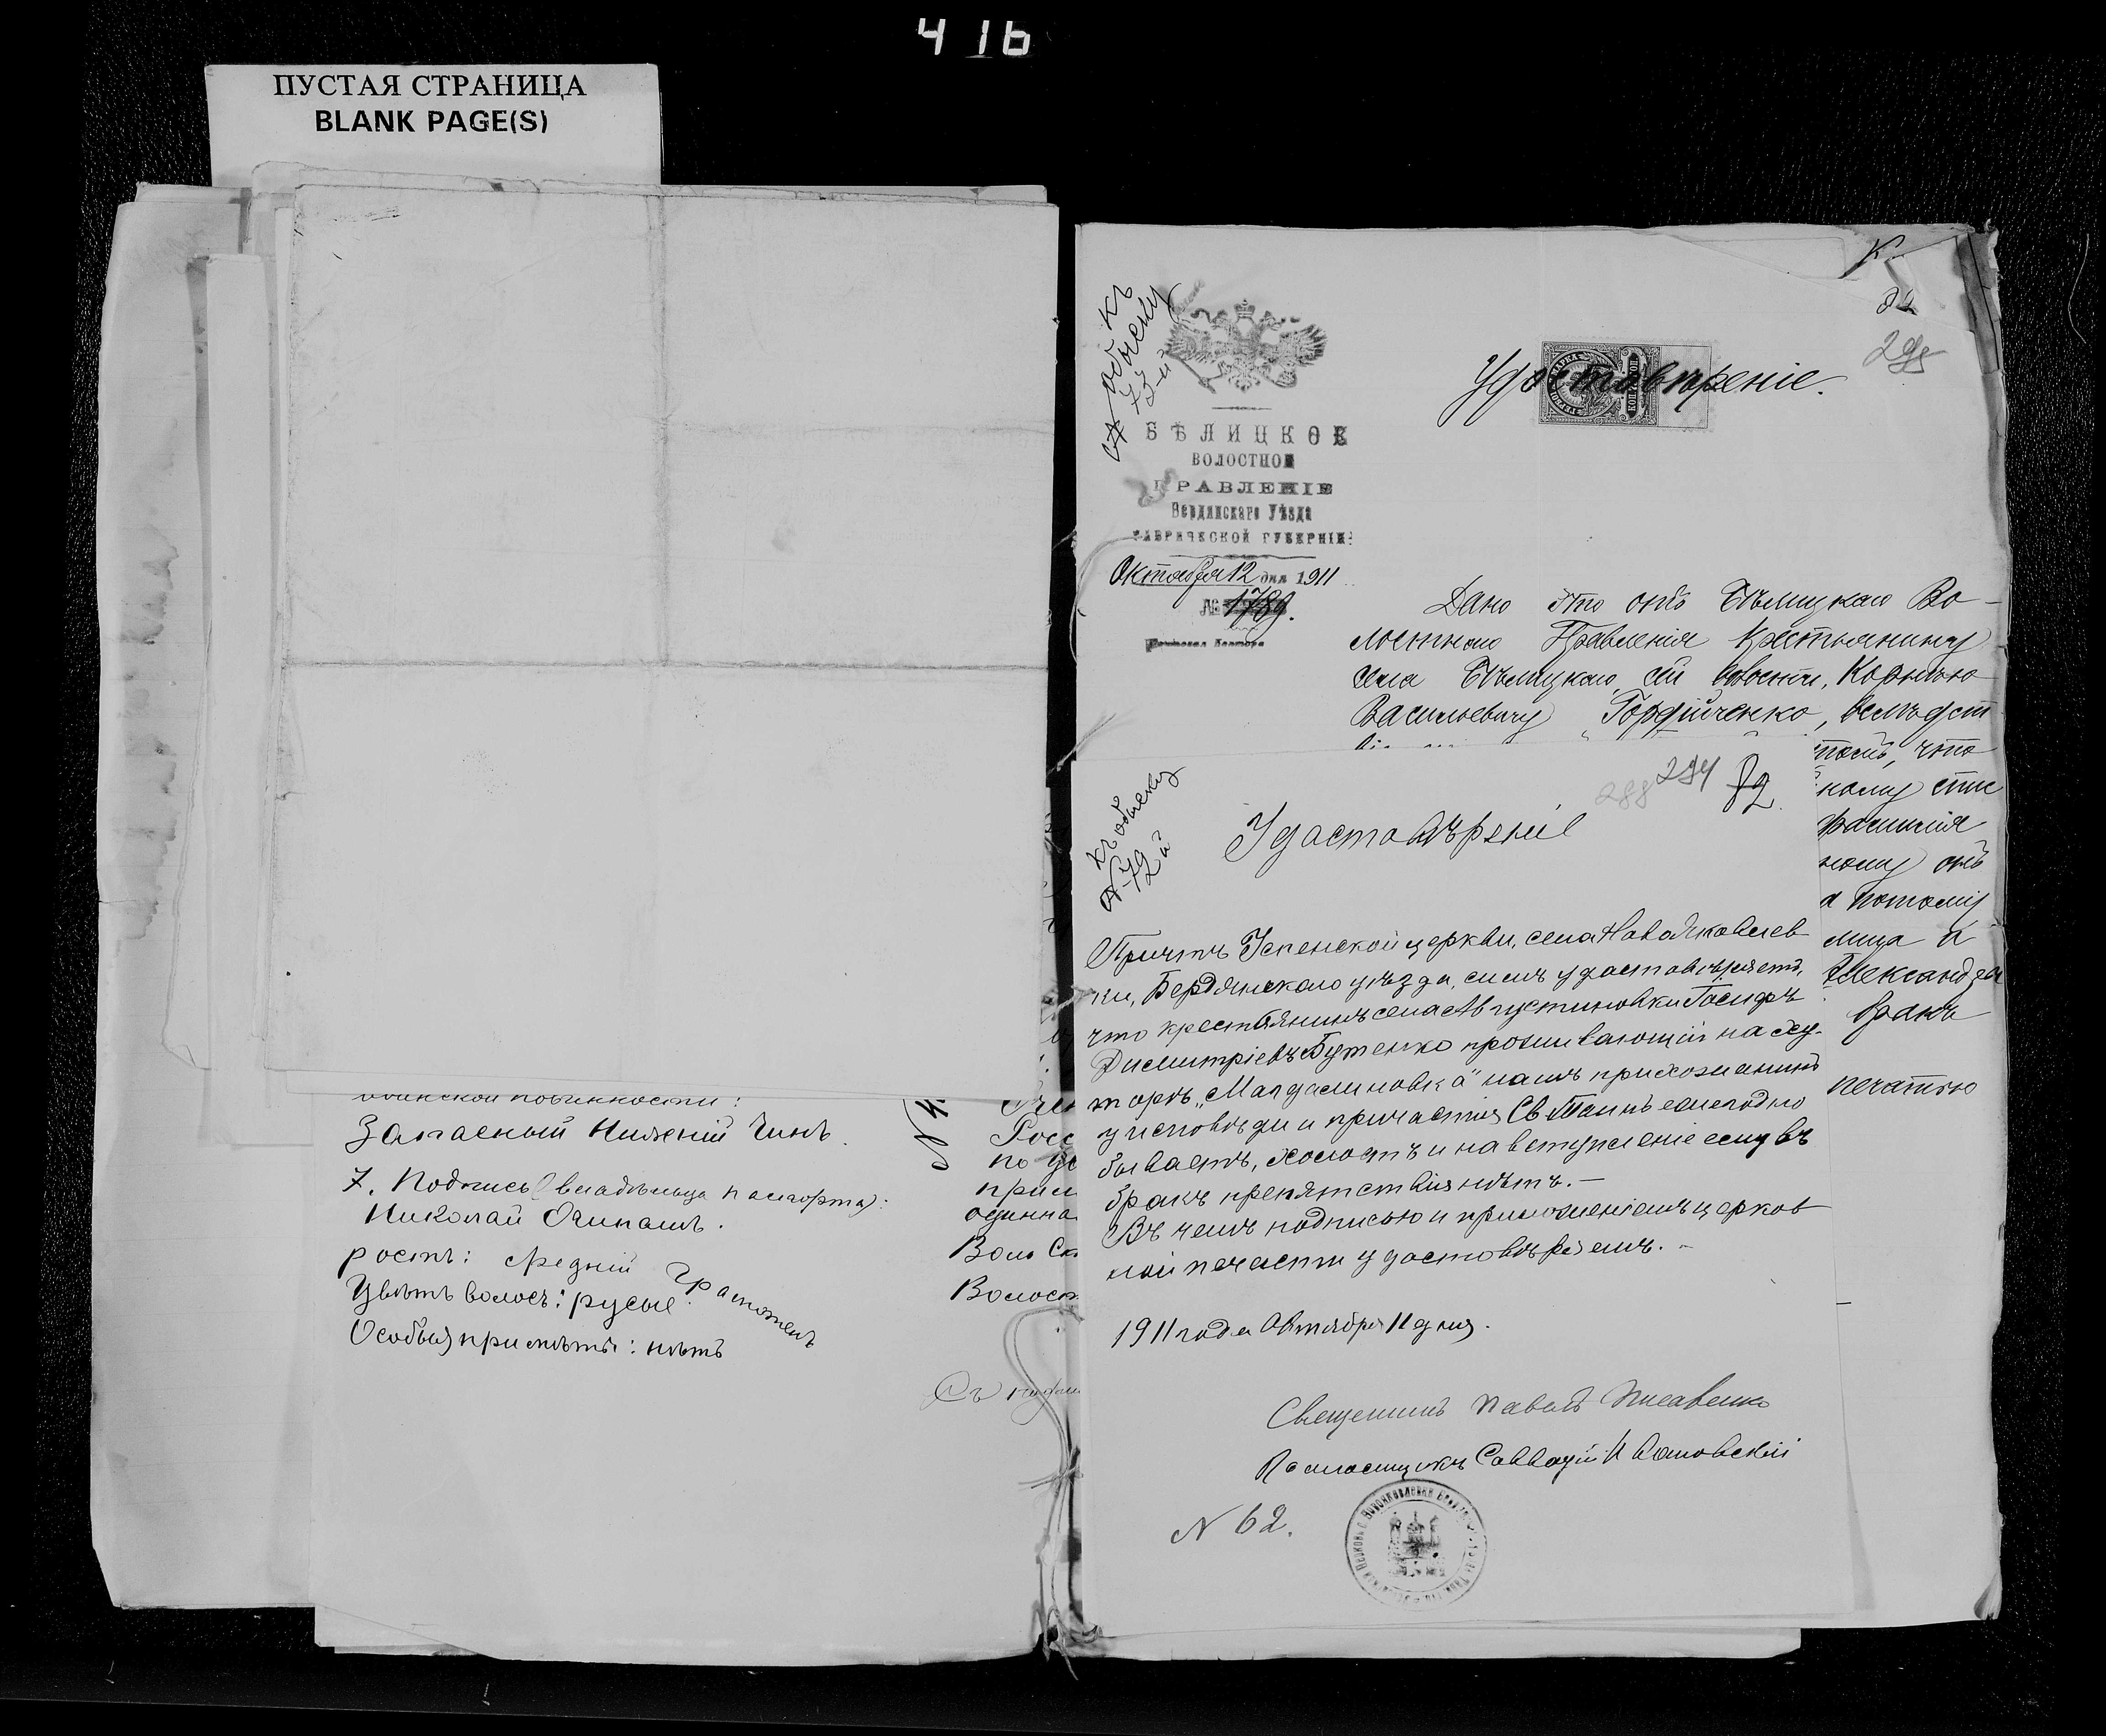 416
ПУСТАЯ СТРАНИЦА
BLANK PAGE(S)
воинской повинности:
Запасный Нижній Чинъ.
7. Подпись (владѣльца паспорта):
Николай Очипашъ.
ростъ: средній
Цвѣтъ волосъ: русые. Грамотенъ
Особыя примѣты: нѣтъ
Росс
по ук
прил
одинна
Вол. Ск
Волост
Съ
къ обыску
73-й
БѢЛИЦКОЕ
ВОЛОСТНОЕ
ПРАВЛЕНІЕ
Бердянскаго Уѣзда
ТАВРИЧЕСКОЙ ГУБЕРНІИ.
Октября 12 дня 1911
№ 1789.
Удостовѣреніе.
298
Дано это отъ Бѣлицкаго Во-
лостного Правленія крестьянину
села Бѣлицкаго, сей волости, Корнѣю
Васильевичу Гордійченко, вслѣдст
томъ, что
ному спис
фамилія
ному отъ
а потому
лица к
Александра
бракъ
печатью
къ обыску
№ 72 й
288 294 82
Удостовѣреніе
Причтъ Успенской церкви, села Новояковлев
ки, Бердянскаго уѣзда, симъ удостовѣряетъ,
что крестьянинъ села Августиновки Іосифъ
Димитріевъ Бутенко проживающій на ху-
торѣ „Магдалиновка" нашъ прихожанинъ
у исповѣди и причастія Св. Таинъ ежегодно
бываетъ, холостъ и на вступленіе ему въ
бракъ препятствія нѣтъ. —
Въ чемъ подписью и приложеніемъ церков
ной печасти удостовѣряемъ. —
1911 года Октября 11 дня.
Священникъ Павелъ
Псаломщикъ Савватій Ивановскій
N 62.